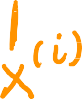 1
x (i)